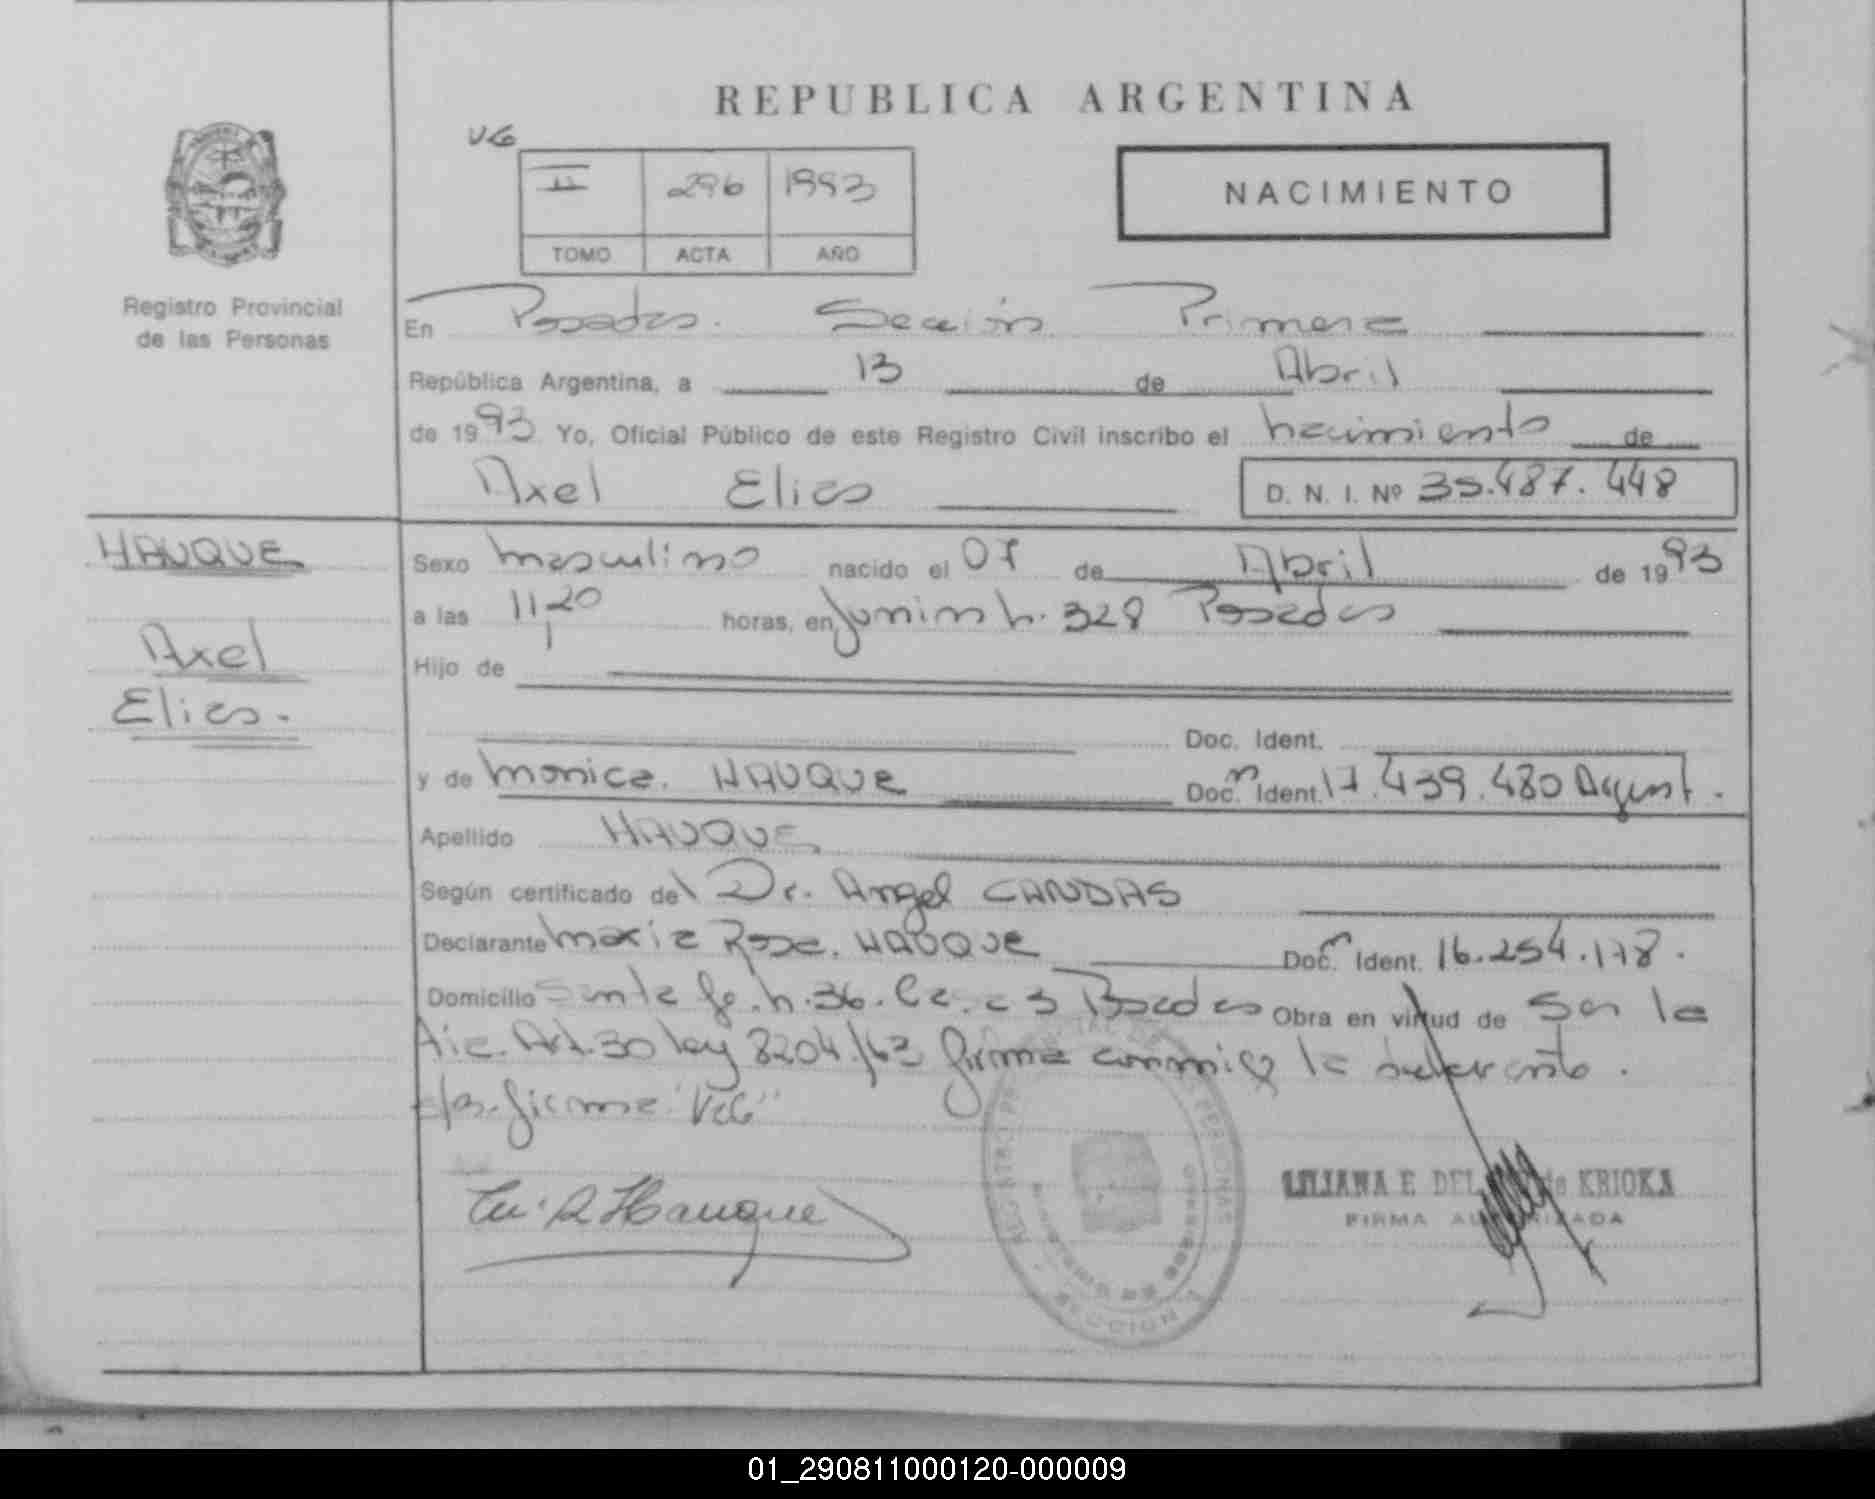 REPUBLICA ARGENTINA
VG
II 296 1993
TOMO ACTA AÑO
NACIMIENTO
Registro Provincial
de las Personas
En Posadas. Sección Primera
República Argentina, a 13 de Abril
de 1993 Yo, Oficial Público de este Registro Civil inscribo el nacimiento de
Axel Elias D. N. I. Nº 35.487.448
HAUQUE
Axel
Elias.
Sexo masculino nacido el 07 de Abril de 1993
a las 11,20 horas, en Junin n. 328 Posadas
Hijo de
Doc. Ident.
y de Monica. HAUQUE Doc. Ident. 17.439.480 Argent.
Apellido HAUQUE
Según certificado del Dr. Angel CANDAS
Declarante Maria Rosa. HAUQUE Doc. Ident. 16.254.178.
Domicilio Santa fe. n. 36. Posadas Obra en virtud de Ser la
Tia. Art. 30 ley 8204/63 firma conmigo la declarante.
firma "VG"
M. R. Hauque
LILIANA E DEL de KRIOKA
FIRMA AUTORIZADA
SECCION 1
01_290811000120-000009